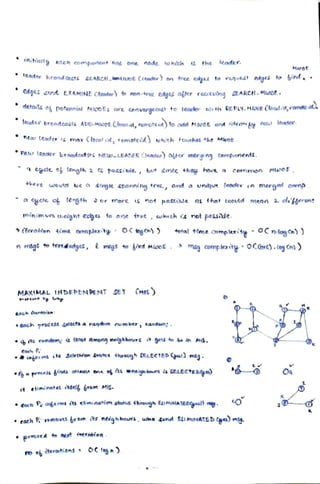 • initially each component has one node which is the leader.
• leader broadcasts SEARCH_MWOE (leader) on tree edges to request edges to find MWOE.
• edges send EXAMINE (leader) to non-tree edges after recieving SEARCH_MWOE.
• details of potential MWOEs are convergecast to leader with REPLY_MWOE (localid, remoteid)
• leader broadcasts ADD_MWOE (localid, remoteid) to add MWOE and identify new leader.
• new leader is max (localid, remoteid) which touches the MWOE.
• new leader broadcasts NEW_LEADER (leader) after merging components.
- a cycle of length 2 is possible, but since they have a common MWOE,
there would be a single spanning tree, and a unique leader in merged comp
- a cycle of length 3 or more is not possible as that could mean 2 different
minimum weight edges to one tree, which is not possible.
• iteration time complexity - O(log(n)) total time complexity - O(n·log(n))
n msgs to tree edges, l msgs to find MWOE msg complexity - O((n+l)·log(n))
MAXIMAL INDEPENDENT SET (MIS)
each iteration
• each process selects a random number, random;
• if its random; is least among neighbours it gets to be in MIS.
each Pi
• informs its selection status through SELECTED msg.
• if a process finds one of its neighbours is SELECTED
it eliminates itself from MIS.
• each Pi informs its elimination status through ELIMINATED msg.
• each Pi removes from its neighbours, who send ELIMINATED msg.
• proceed to next iteration.
no of iterations = O(log n)